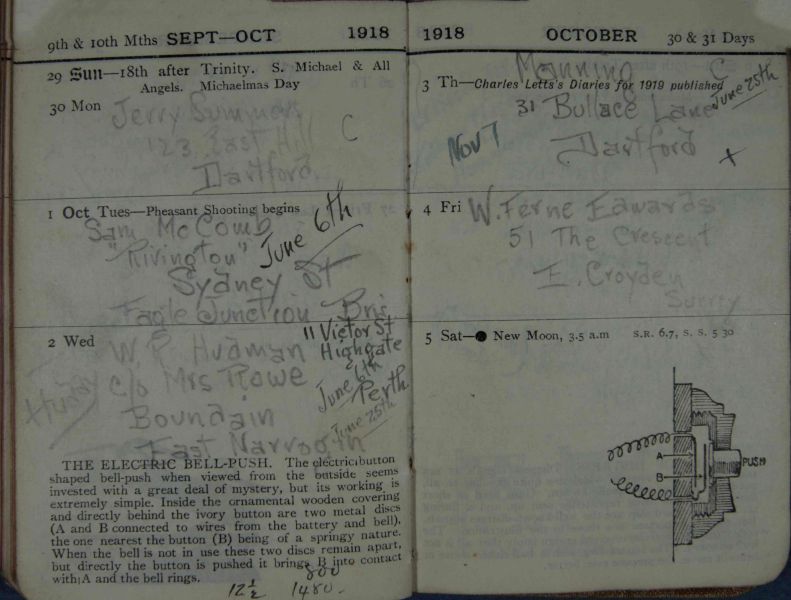 9th & 10th Mths SEPT—OCT 1918
29 Sun—18th after Trinity. S. Michael & All
Angels. Michaelmas Day
30 Mon
Jerry Summers
123 East Hill C
Dartford.
1 Oct Tues—Pheasant Shooting begins
Sam McComb
"Rivington" June 6th
Sydney St
Eagle Junction Bris
2 Wed
W. P. Hudman
c/o Mrs Rowe
Boundain
East Narrogin
11 Victor St
Highgate
Perth
June 6th
June 25th
THE ELECTRIC BELL-PUSH. The electric button
shaped bell-push when viewed from the outside seems
invested with a great deal of mystery, but its working is
extremely simple. Inside the ornamental wooden covering
and directly behind the ivory button are two metal discs
(A and B connected to wires from the battery and bell),
the one nearest the button (B) being of a springy nature.
When the bell is not in use these two discs remain apart,
but directly the button is pushed it brings B into contact
with A and the bell rings.
12½ 1480.
1918 OCTOBER 30 & 31 Days
Manning C
3 Th—Charles Letts's Diaries for 1919 published
June 25th
31 Bullace Lane
Nov 7
Dartford x
4 Fri W. Ferne Edwards
51 The Crescent
E. Croyden
Surrey
5 Sat—● New Moon, 3.5 a.m S.R. 6.7, S. S. 5 30
A
B
PUSH